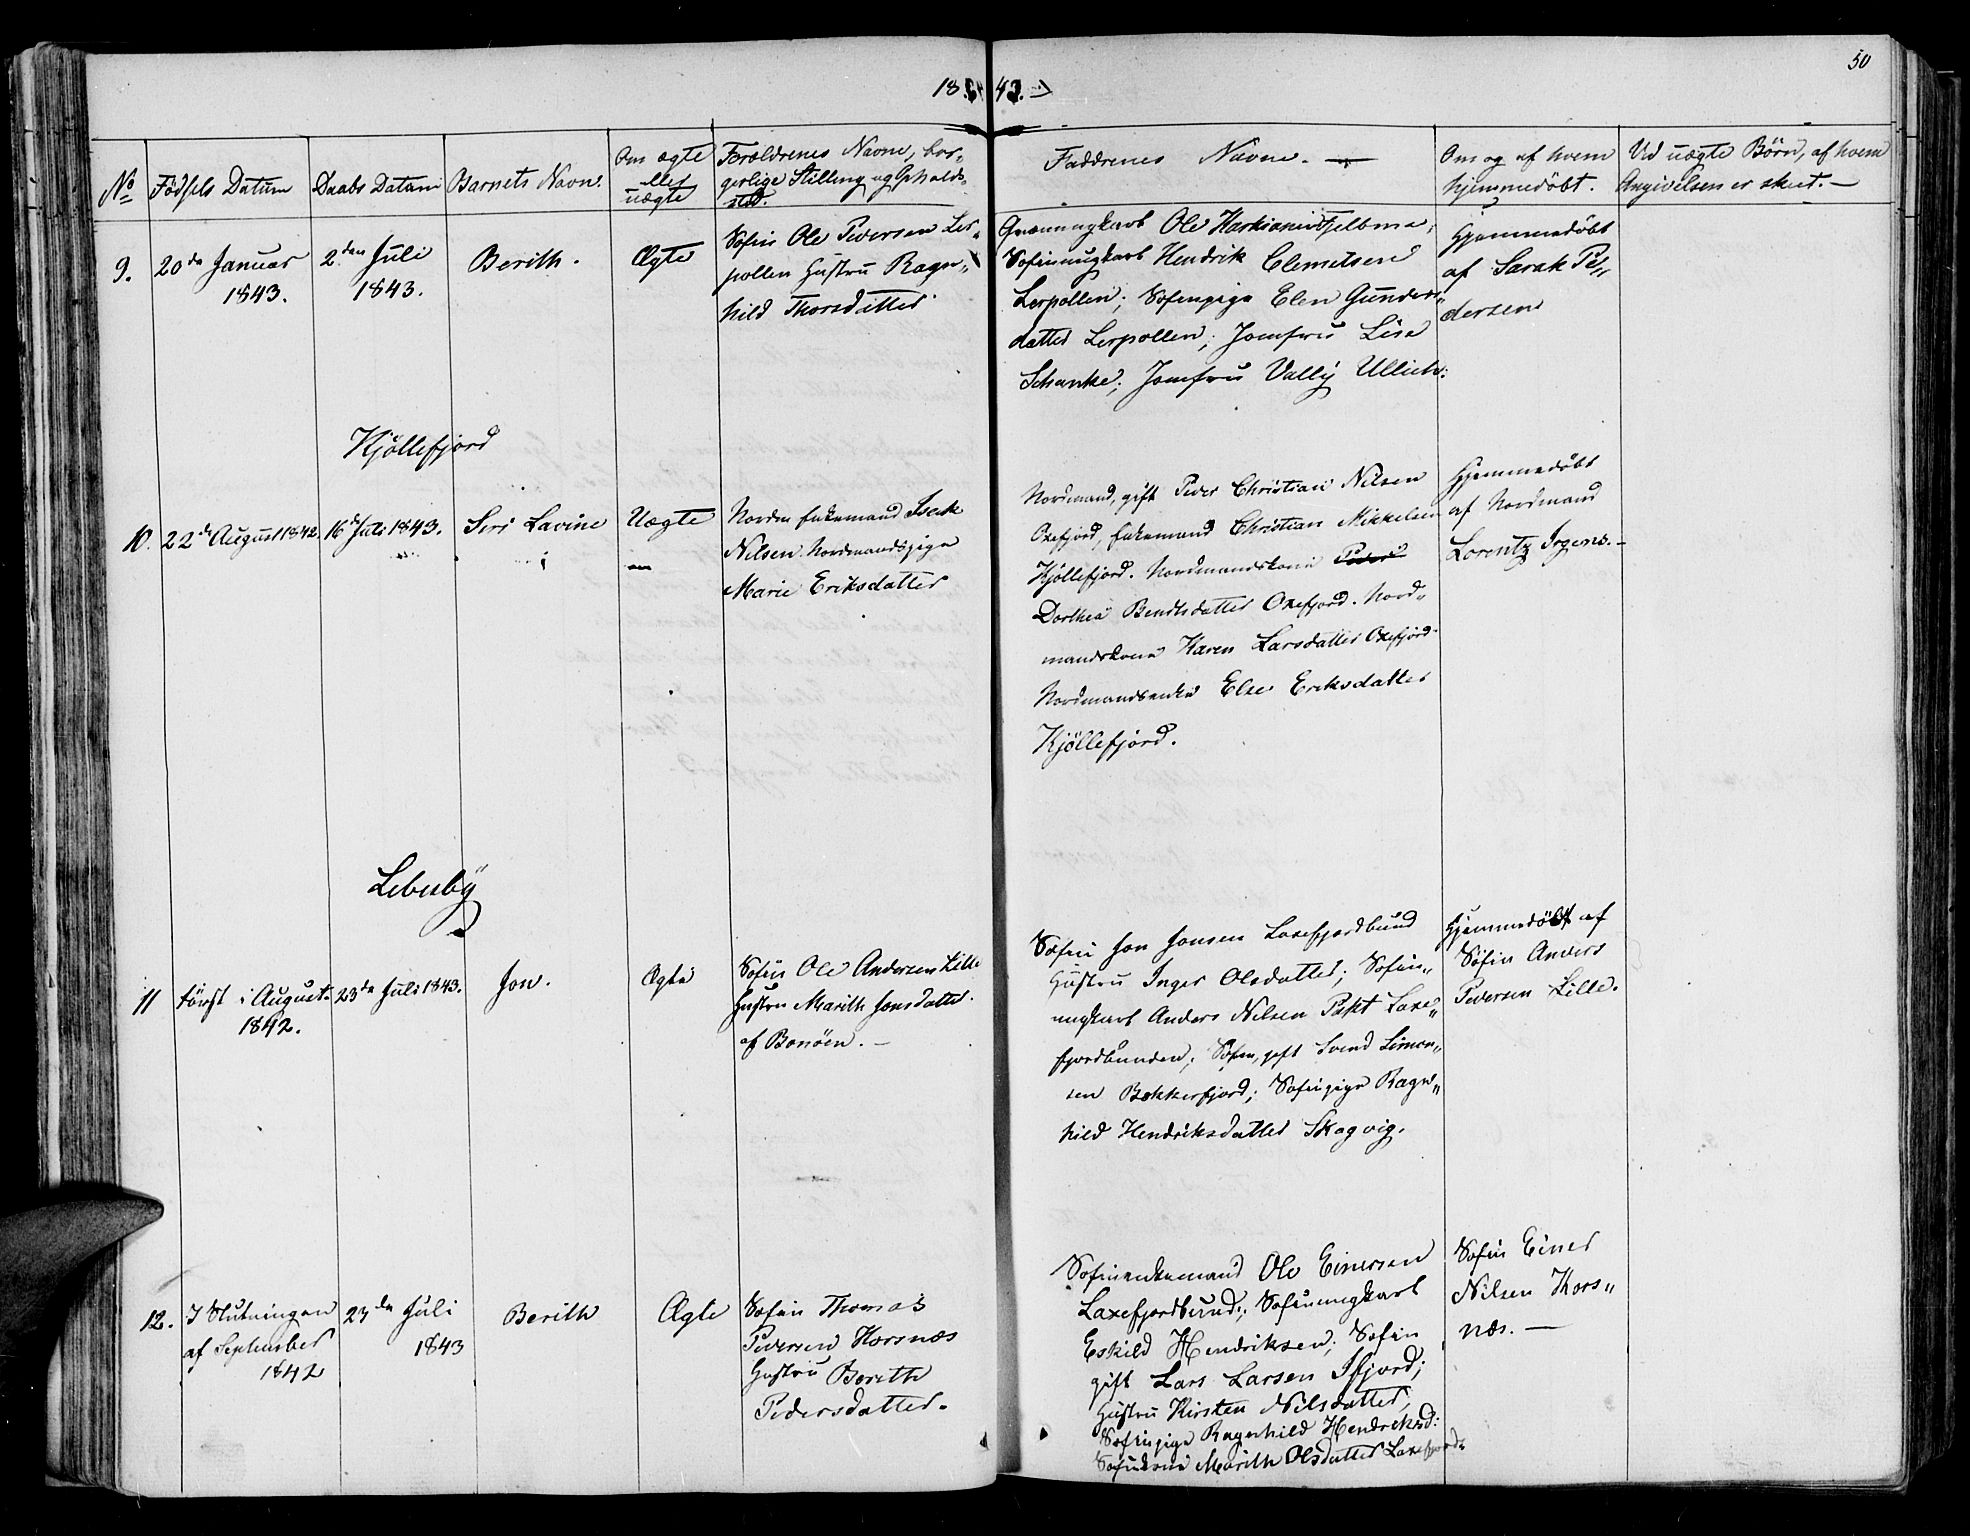 50
1843.
No
Fødsels Datum
Daabs Datum
Barnets Navn.
Om ægte
eller
uægte
Forældrenes Navne, bor-
gerlige Stilling og Opholds-
sted.
Faddrenes Navne.
Om og af hvem
hjemmedøbt.
Ved uægte Børn, af hvem
Angivelsen er skeet.
9.
20de Januar
1843.
2den Juli
1843.
Berith.
Ægte
Søfin Ole Pedersen Ler-
pollen Hustru Ragn-
hild Thorsdatter
Ole
Søfinungkarl Hendrik Clemetsen
Lerpollen; Søfinpige Elen Gunders-
datter Lerpollen; Jomfru Lise
Schanke; Jomfru Vally Ullich:
Hjemmedøbt
af Sarak Pe-
dersen
Kjøllefjord
10.
22de August 1842.
16de Juli 1843.
Siri Lavine
Uægte
Nordm Enkemand Isak
Nilsen. Nordmandspige
Marie Eriksdatter
Nordmand, gift Peder Christian Nilsen
Oxefjord, Enkemand Christian Mikkelsen
Kjøllefjord. Nordmandskone Peder
Dorthea Bendtsdatter Oxefjord. Nord-
mandskone Karen Larsdatter Oxefjord.
Nordmandsenke Else Eriksdatter
Kjøllefjord.
Hjemmedøbt
af Nordmand
Lorentz Irgens.
Lebesby
11
først i August
1842.
23de Juli 1843.
Jon.
Ægte
Søfin Ole Andersen Lille
Hustru Marith Jonsdatter
af Bonøen.
Søfin Jon Jonsen Laxefjordbund
Hustru Inger Olsdatter; Søfin-
ungkarl Anders Nilsen Pakt Laxe-
fjordbunden; Søfin, gift Svend Simon-
sen Bekkerfjord; Søfinpige Ragn-
hild Hendriksdatter Skogvig.
Hjemmedøbt af
Søfin Anders
Pedersen Lille.
12.
I Slutningen
af September
1842
23de Juli
1843
Berith
Ægte
Søfin Thomas
Pedersen Torsnæs
Hustru Berith
Pedersdatter.
Søfinenkemand Ole Einersen
Laxefjordbund; Søfinungkarl
Eskild Hendriksen; Søfin
gift Lars Larsen Ifjord;
Hustru Kirsten Nilsdatter;
Søfinpige Ragnhild Hendriksd:
Søfinkone Marith Olsdatter Laxefjord
Søfin Einer
Nilsen Thors-
næs.